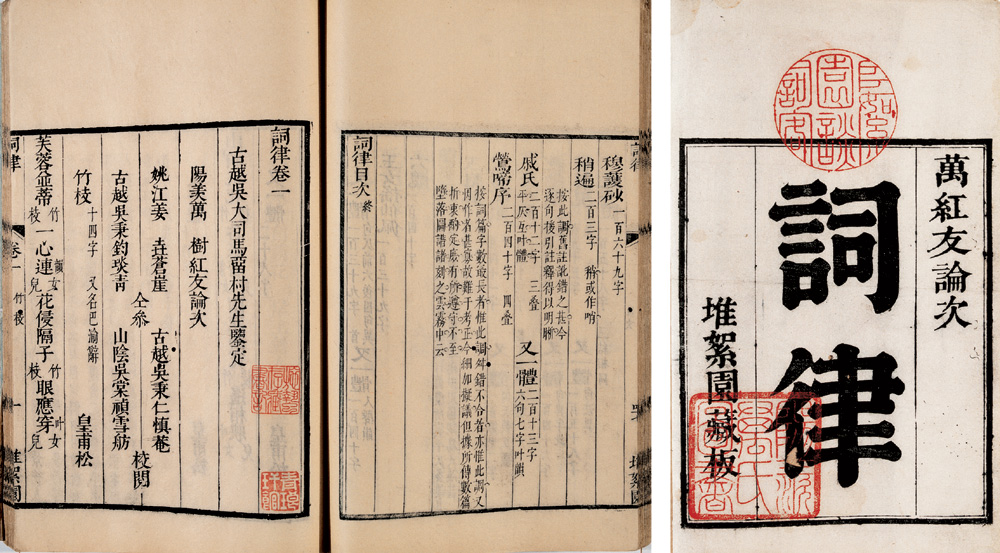 萬紅友論次
詞律
堆絮園藏板
穆護砂 一百六十九字
稍遍 二百三字 稍或作哨
按此調舊註訛錯之甚今
逐句後引註釋得以明晰
戚氏 二百十二字 三叠
平仄互叶體
又一體 二百十三字
六句七字叶韻
鶯啼序 二百四十字 四叠
按詞篇字數最長者惟此調舛錯不合者亦惟此調又
因作者甚尠故難于考正今細加擬議但據所傳數篇
折衷酌定庶有所遵守不至
墮落圖譜諸刻之雲霧中云
詞律目次 終
堆絮園
詞律卷一
古越吳大司馬留村先生鑒定
陽羡萬 樹紅友論次
姚江姜 垚蒼崖
古越吳秉鈞琰青
仝叅
古越吳秉仁慎菴
山陰吳棠禎雪舫
校閱
竹枝 十四字 又名巴渝辭
皇甫松
芙蓉並蒂 竹枝 一心連 韻女兒 花侵隔子 竹枝 眼應穿 叶女兒
詞律
卷一
竹枝
一
堆絮園